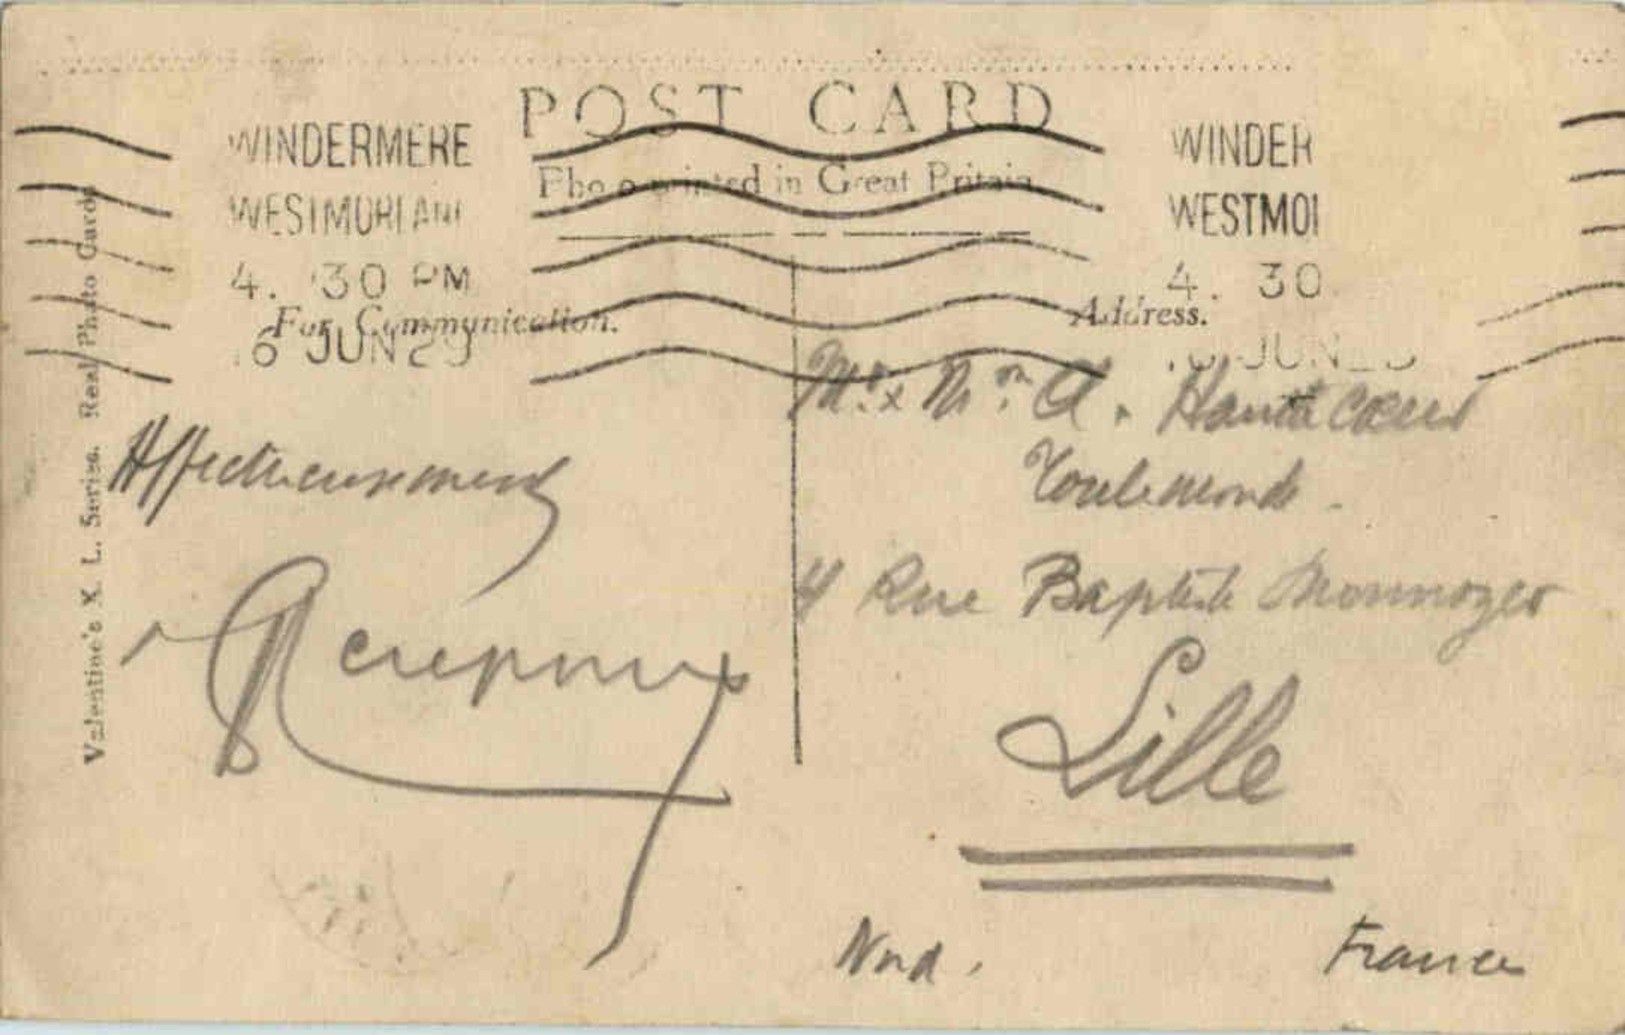 POST CARD
Photo printed in Great Britain
WINDERMERE
WESTMORLAND
4. 30 PM
6 JUN 29
WINDER
WESTMOR
4. 30
JUN
For Communication.
Address.
Valentine's X. L. Series. Real Photo Cards
Affectueusement
Mr & Mme A. Hautecœur
Toulemonde.
4 Rue Baptiste Monnoyer
Lille
Nord.
France